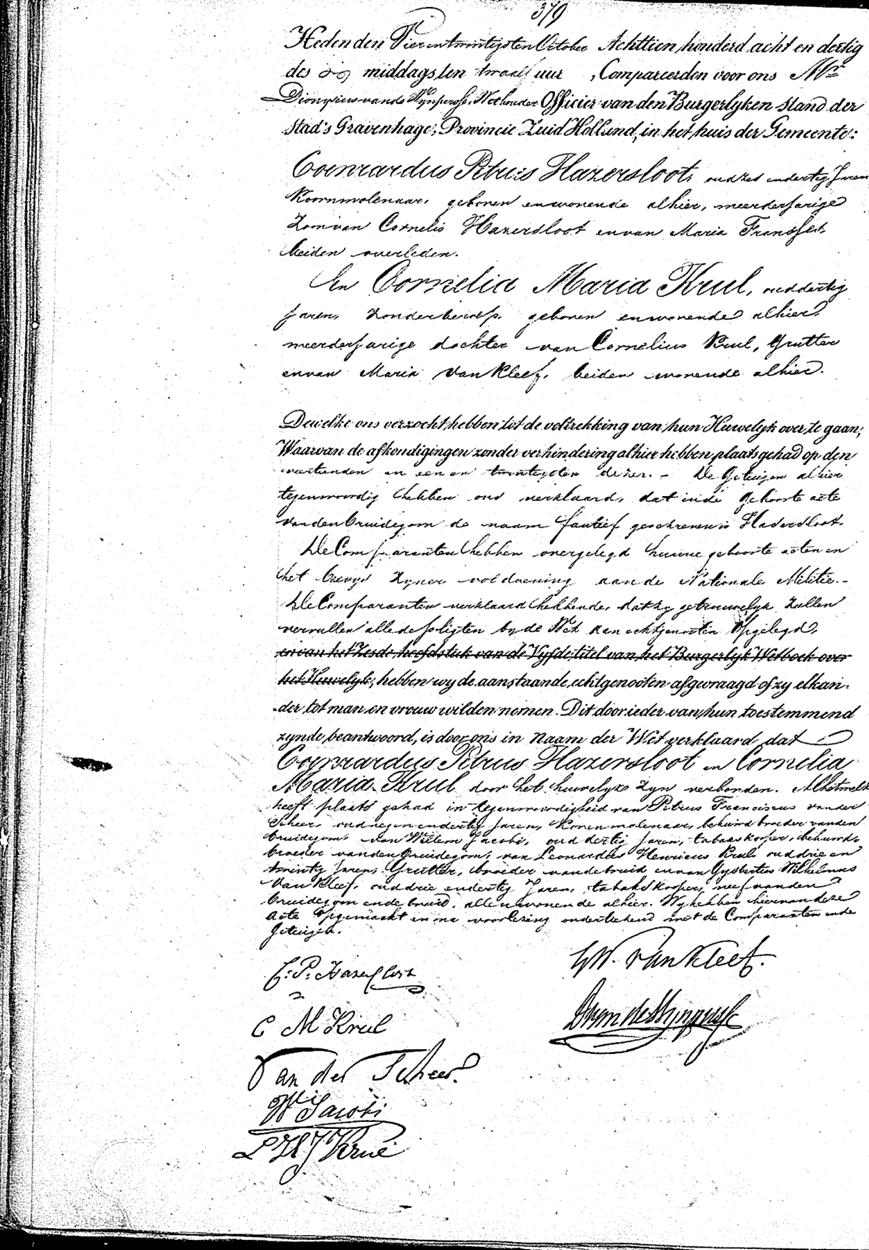 379
Heden den Vier en twintigsten October Achttien honderd acht en dertig
des middags ten twaalf uur, Compareerden voor ons Mr.
Dionysius van de Wynpersse, Wethouder Officier van den Burgerlyken stand der
Stad 's Gravenhage, Provincie Zuid Holland, in het huis der Gemeente:
Coenrardus Petrus Hazersloot, oud zes en dertig Jaren
Koornmolenaar, geboren en wonende alhier, meerderjarige
Zoon van Cornelis Hazersloot en van Maria
beiden overleden.
En Cornelia Maria Krul, oud dertig
Jaren, zonder beroep, geboren en wonende alhier,
meerderjarige dochter van Cornelius Krul, Grutter
en van Maria van Kleef, beiden wonende alhier.
Dewelke ons verzocht hebben tot de voltrekking van hun Huwelyk over te gaan;
Waarvan de afkondigingen zonder verhindering alhier hebben plaats gehad op den
veertienden en een en twintigsten dezer. - De Getuigen alhier
tegenwoordig hebben ons verklaard, dat in de geboorte acte
van den bruidegom de naam foutief geschreven is Haversloot.
De Comparanten hebben overgelegd hunne geboorte acten en
het bewys zyner voldoening aan de Nationale Militie. -
De Comparanten verklaard hebbende, dat zy getrouwelyk zullen
vervullen alle de pligten by de Wet aan echtgenooten opgelegd,
en van het Zesde hoofdstuk van de Vyfde titel van het Burgerlyk Wetboek over
het Huwelyk; hebben wy de aanstaande echtgenooten afgevraagd of zy elkan-
der tot man en vrouw wilden nemen. Dit door ieder van hun toestemmend
zynde beantwoord, is door ons in Naam der Wet verklaard, dat
Coenrardus Petrus Hazersloot en Cornelia
Maria Krul door het huwelyk zyn verbonden. Al hetwelk
heeft plaats gehad in tegenwoordigheid van Petrus Franciscus van der
Scheer oud negen en dertig Jaren, Korenmolenaar, behuwd broeder van den
bruidegom, van Willem Jacobi, oud dertig Jaren, tabakskooper, behuwd
broeder van den bruidegom, van Leonardus Henricus Krul oud drie en
twintig Jaren, Grutter, broeder van de bruid en van Gysbertus Wilhelmus
van Kleef, oud drie en dertig Jaren, tabakskooper, neef van den
bruidegom en de bruid, alle wonende alhier. Wy hebben hiervan deze
acte opgemaakt en na voorlezing onderteekend met de Comparanten en de
Getuigen.
C. P. Hazersloot
G W. van Kleef.
C M Krul
van de Wynpersse
Van der Scheer.
W Jacobi
L H J Krul